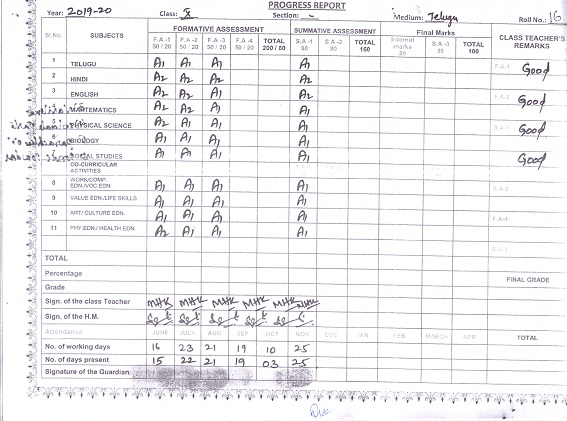 PROGRESS REPORT
Year: 2019-20 Class: X Section: - Medium: Telugu Roll No.: 16
Sl.No. SUBJECTS FORMATIVE ASSESSMENT SUMMATIVE ASSESSMENT Final Marks CLASS TEACHER'S REMARKS
F.A -1 50 / 20 F.A -2 50 / 20 F.A -3 50 / 20 F.A -4 50 / 20 TOTAL 200 / 80 S.A -1 80 S.A -2 80 TOTAL 160 Internal marks 20 S.A -3 80 TOTAL 100
1 TELUGU A1 A1 A1 A1 F.A-1 Good
2 HINDI A2 A2 A2 A2
3 ENGLISH A2 A2 A1 A1 F.A-2 Good
MATHEMATICS A2 A2 A1 A1
PHYSICAL SCIENCE A2 A1 A1 A1 S.A-1 Good
6 BIOLOGY A1 A1 A1 A1
SOCIAL STUDIES A1 A1 A1 A1 Good
CO-CURRICULAR ACTIVITIES
8 WORK/COMP. EDN./VOC.EDN A1 A1 A1 A1 S.A-2
9 VALUE EDN./LIFE SKILLS A1 A1 A1 A1
10 ART/ CULTURE EDN. A1 A1 A1 A1 F.A-4
11 PHY.EDN./ HEALTH EDN. A2 A1 A1 A1
S.A-3
TOTAL
Percentage FINAL GRADE
Grade
Sign. of the class Teacher MHK MHK MHK MHK MHK MHK
Sign. of the H.M.
Attendance JUNE JULY AUG SEP OCT NOV DEC JAN FEB MARCH APRIL TOTAL
No. of working days 16 23 21 19 10 25
No. of days present 15 22 21 19 03 25
Signature of the Guardian